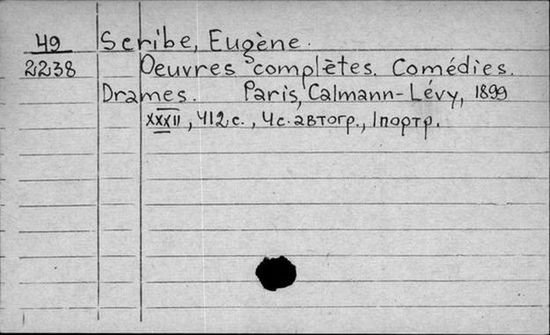 49 Scribe, Eugène.
2238 Oeuvres complètes. Comédies.
Drames. Paris, Calmann-Lévy, 1899
XXXII, 412 с., 4 с. автогр., 1 портр.